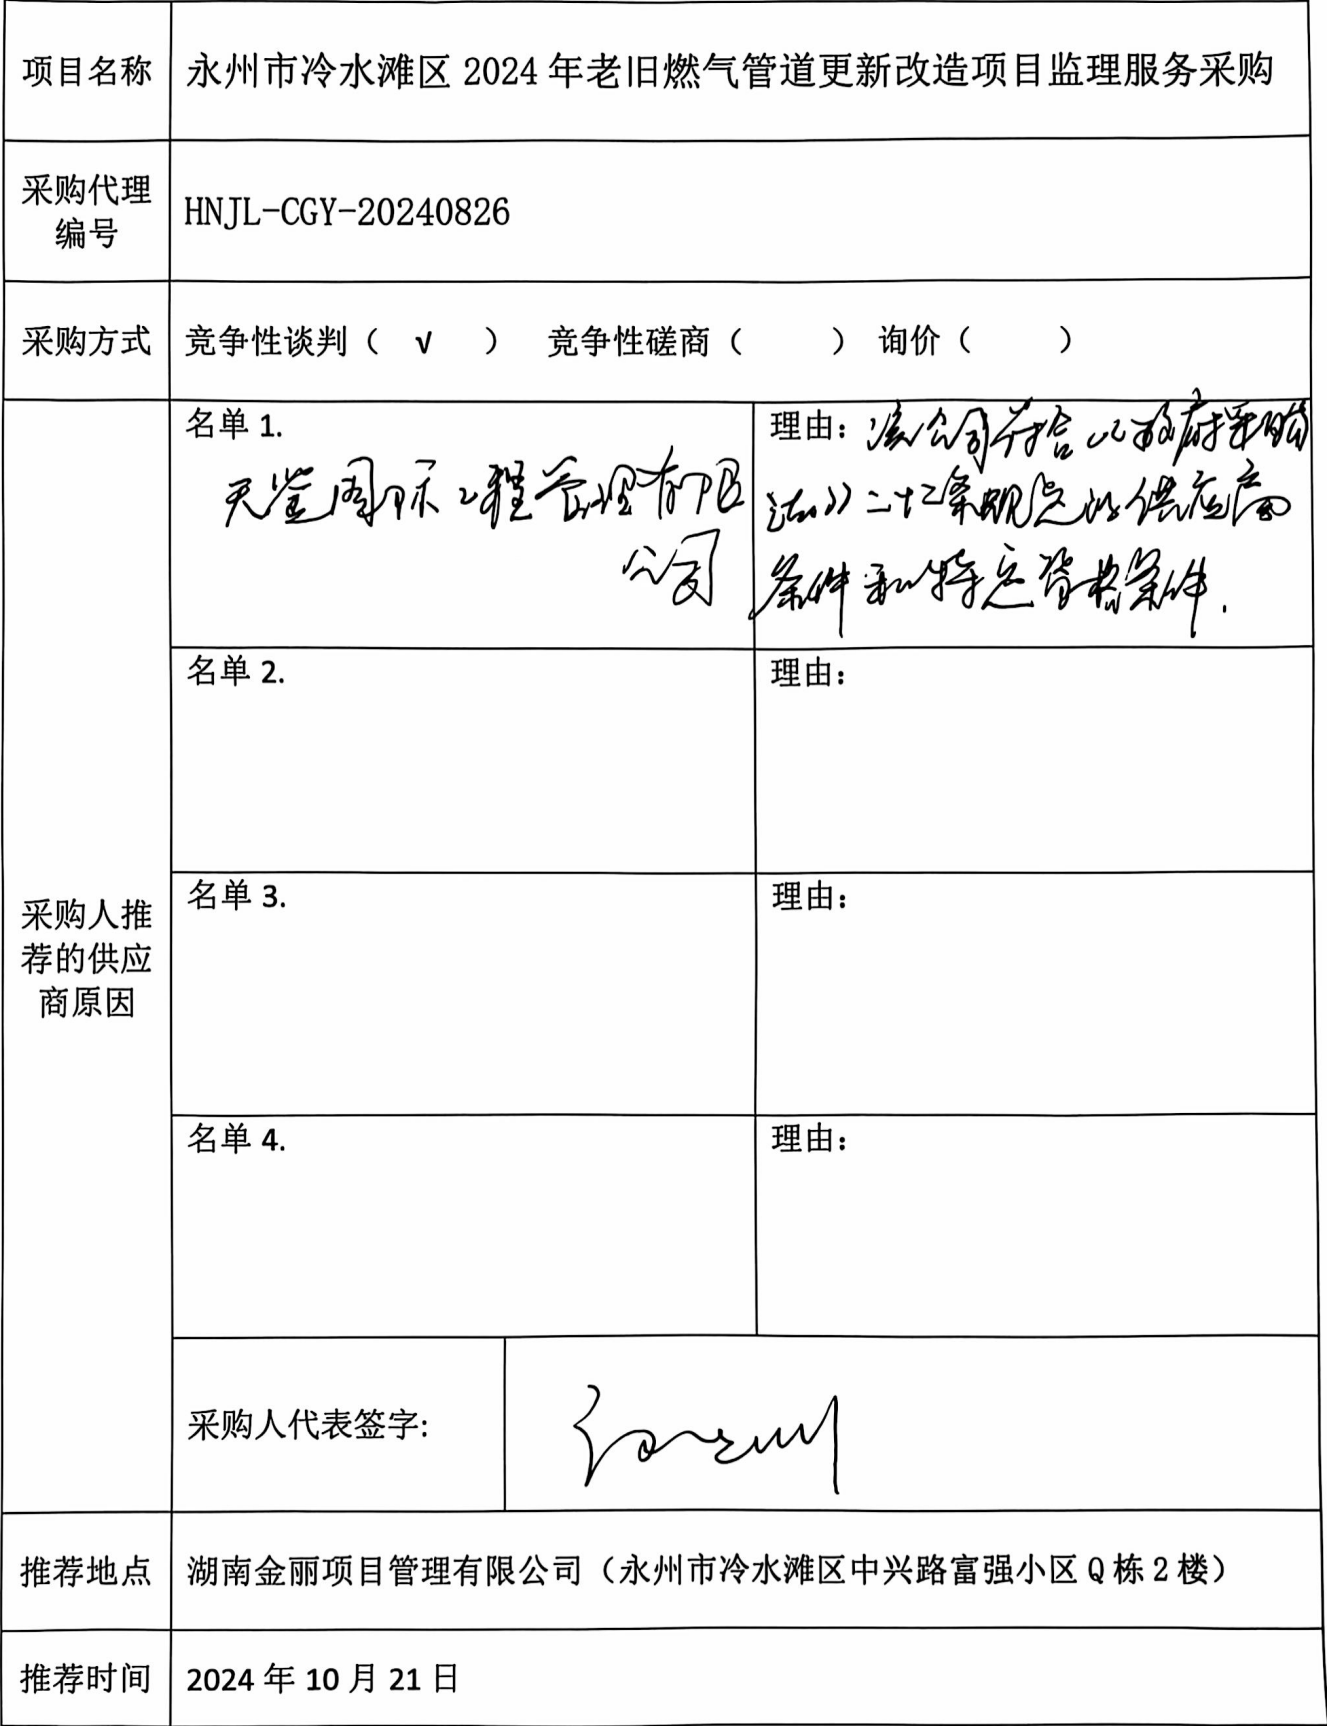 项目名称
永州市冷水滩区 2024 年老旧燃气管道更新改造项目监理服务采购
采购代理
编号
HNJL-CGY-20240826
采购方式
竞争性谈判（ √ ） 竞争性磋商（ ） 询价（ ）
采购人推
荐的供应
商原因
名单 1.
天鉴国际工程管理有限
公司
理由：该公司符合《政府采购
法》二十二条规定的供应商
条件和特定资格条件.
名单 2.
理由：
名单 3.
理由：
名单 4.
理由：
采购人代表签字:
推荐地点
湖南金丽项目管理有限公司（永州市冷水滩区中兴路富强小区 Q 栋 2 楼）
推荐时间
2024 年 10 月 21 日